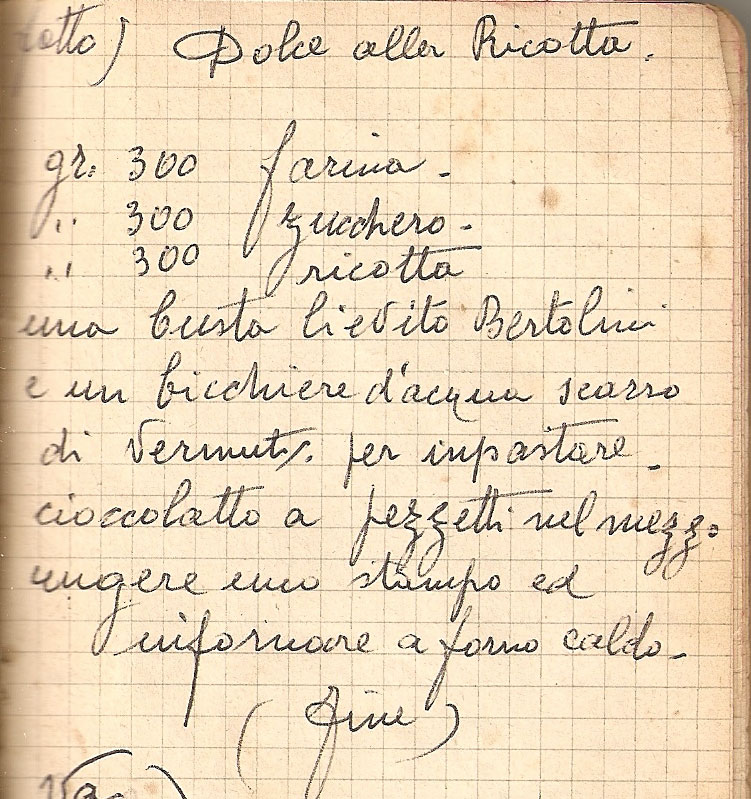 Dolce alla Ricotta.
gr: 300 farina -
" 300 zucchero -
" 300 ricotta
una busta lievito Bertolini
e un bicchiere d'acqua scarso
di Vermut. per inpastare -
cioccolatto a pezzetti nel mezzo
ungere uno stampo ed
infornare a forno caldo -
(fine)